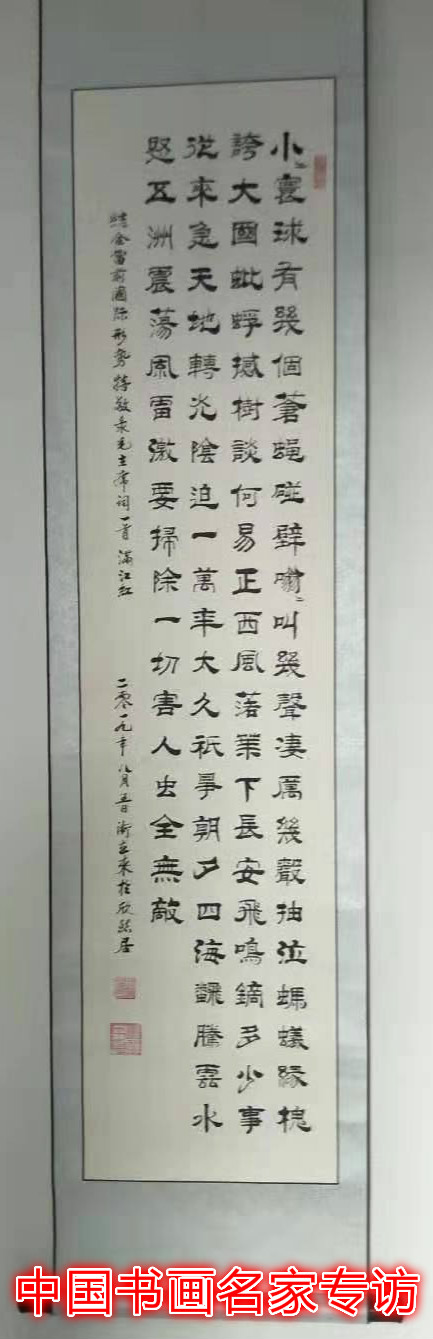 小〻寰球有幾個蒼蝇碰壁嗡〻叫幾聲凄厲幾聲抽泣螞蟻緣槐
誇大國蚍蜉撼樹談何易正西風落葉下長安飛鳴鏑多少事
從來急天地轉光陰迫一萬年太久祇爭朝夕四海翻騰雲水
怒五洲震蕩風雷激要掃除一切害人虫全無敵
结合當前國际形势特敬录毛主席词一首 满江红 二零一九年八月
中国书画名家专访